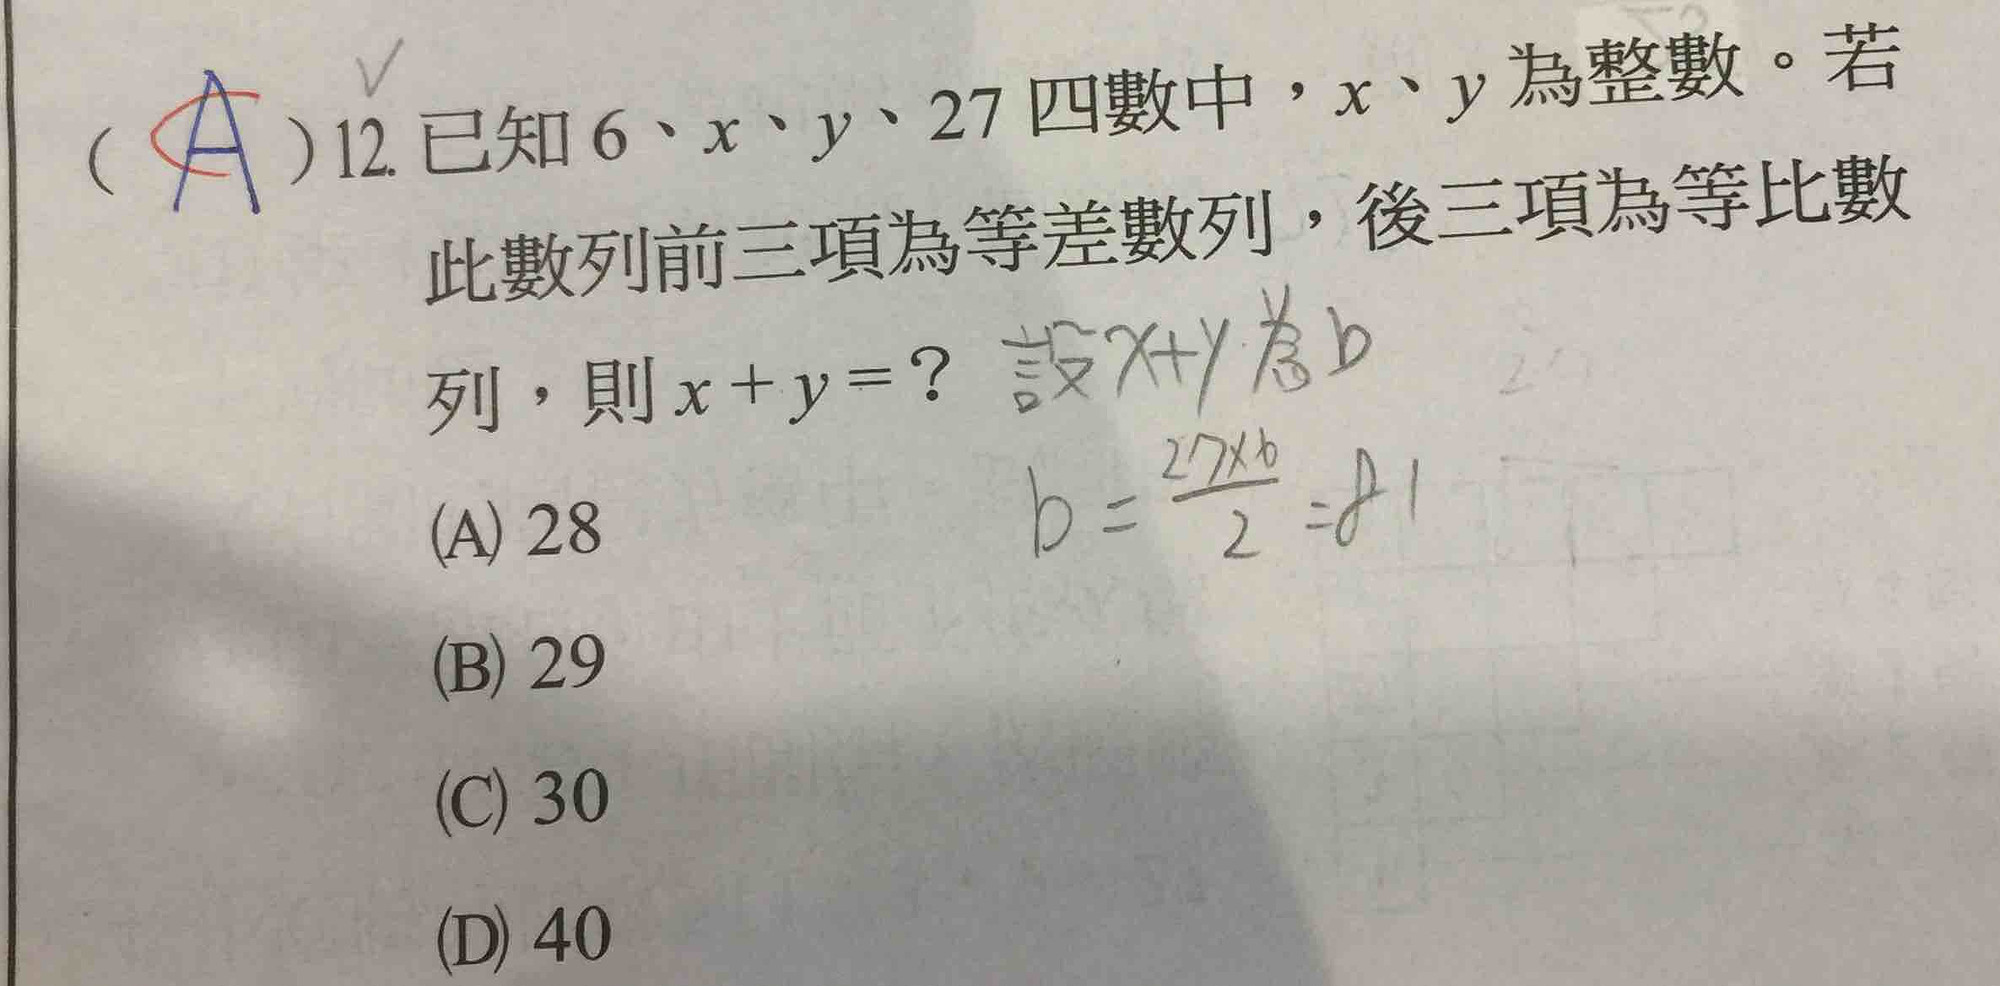 (A)12. 已知 6、x、y、27 四數中，x、y 為整數。若
此數列前三項為等差數列，後三項為等比數
列，則 x + y = ? 設x+y為b
b = 27×6/2 = 81
(A) 28
(B) 29
(C) 30
(D) 40